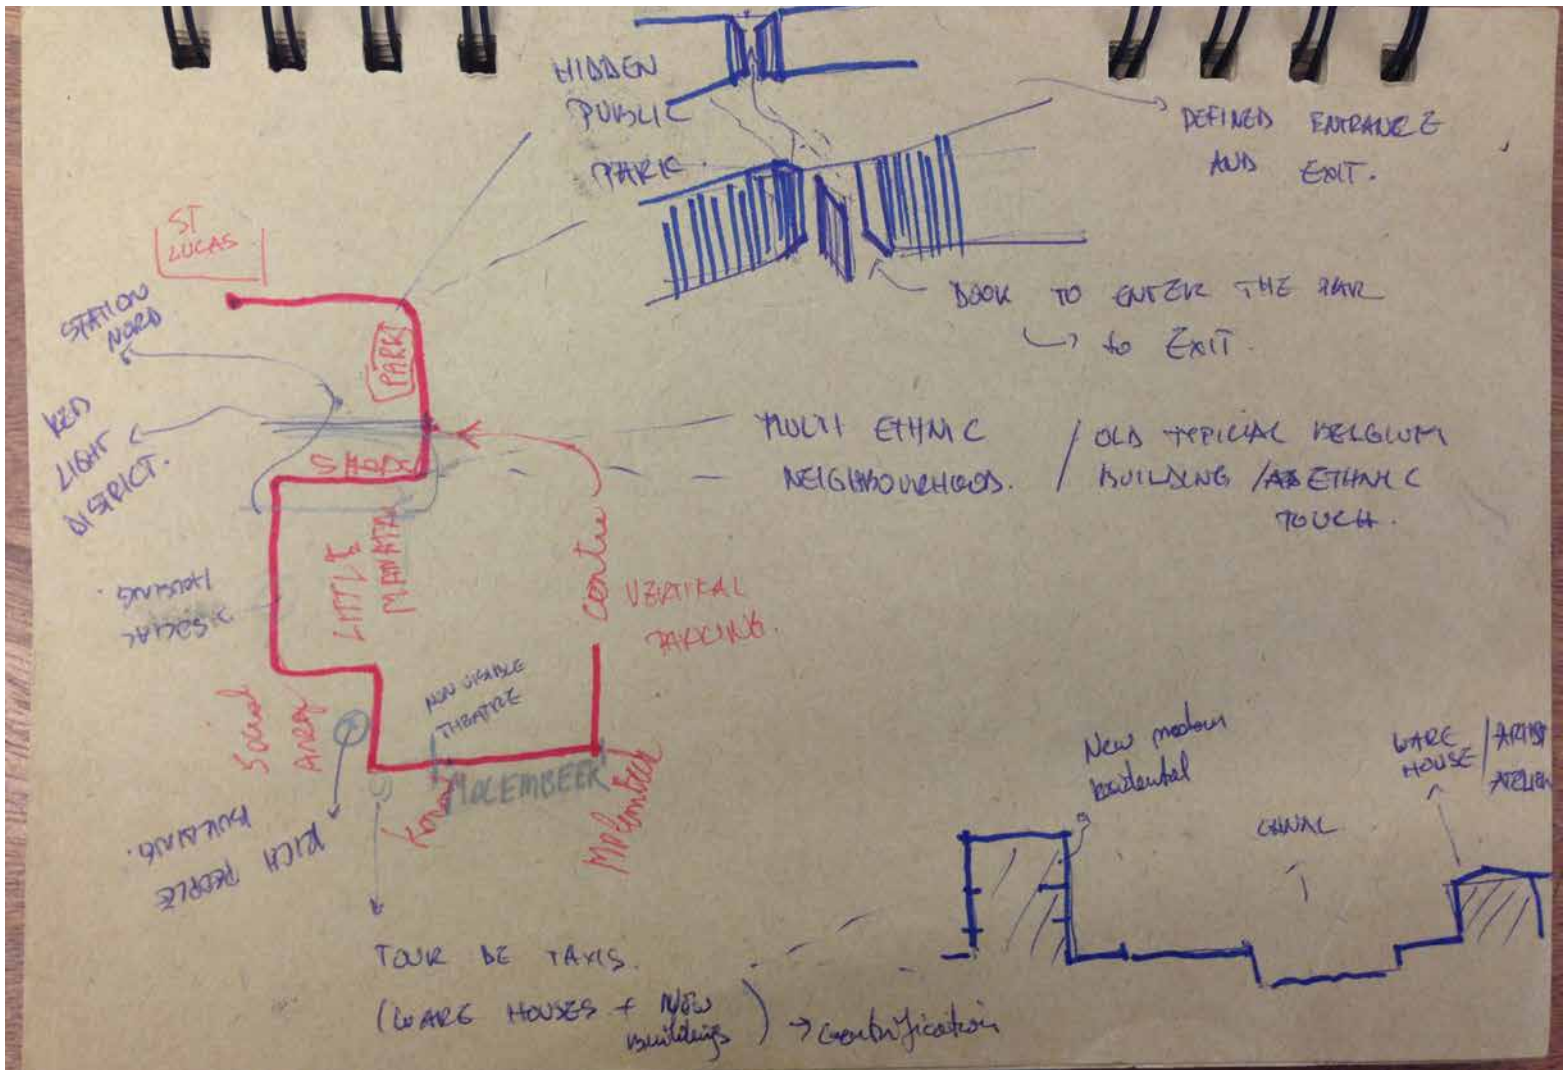 HIDDEN
PUBLIC
PARK.
DEFINED ENTRANCE
AND EXIT.
DOOR TO ENTER THE PAR
to EXIT.
ST
LUCAS
STATION
NORD
PARK
RED
LIGHT
DISTRICT.
SHOP
MULTI ETHNIC
NEIGHBOURHOOD.
/ OLD TYPICIAL BELGIUM
BUILDING / ETHNIC
TOUCH.
LITTLE
MANATA
Centre
VERTIKAL
PARKING.
SOCIAL
HOUSING.
Social
Area
NON VISIBLE
THEATRE
MOLEMBEEK
Molembeek
RICH PEOPLE
BUILDING.
TOUR DE TAXIS.
(WARE HOUSES + NEW
Buildings)
→ Gentrification
New modern
residential
CANAL
WARE
HOUSE /
ARTIST
ATELIER